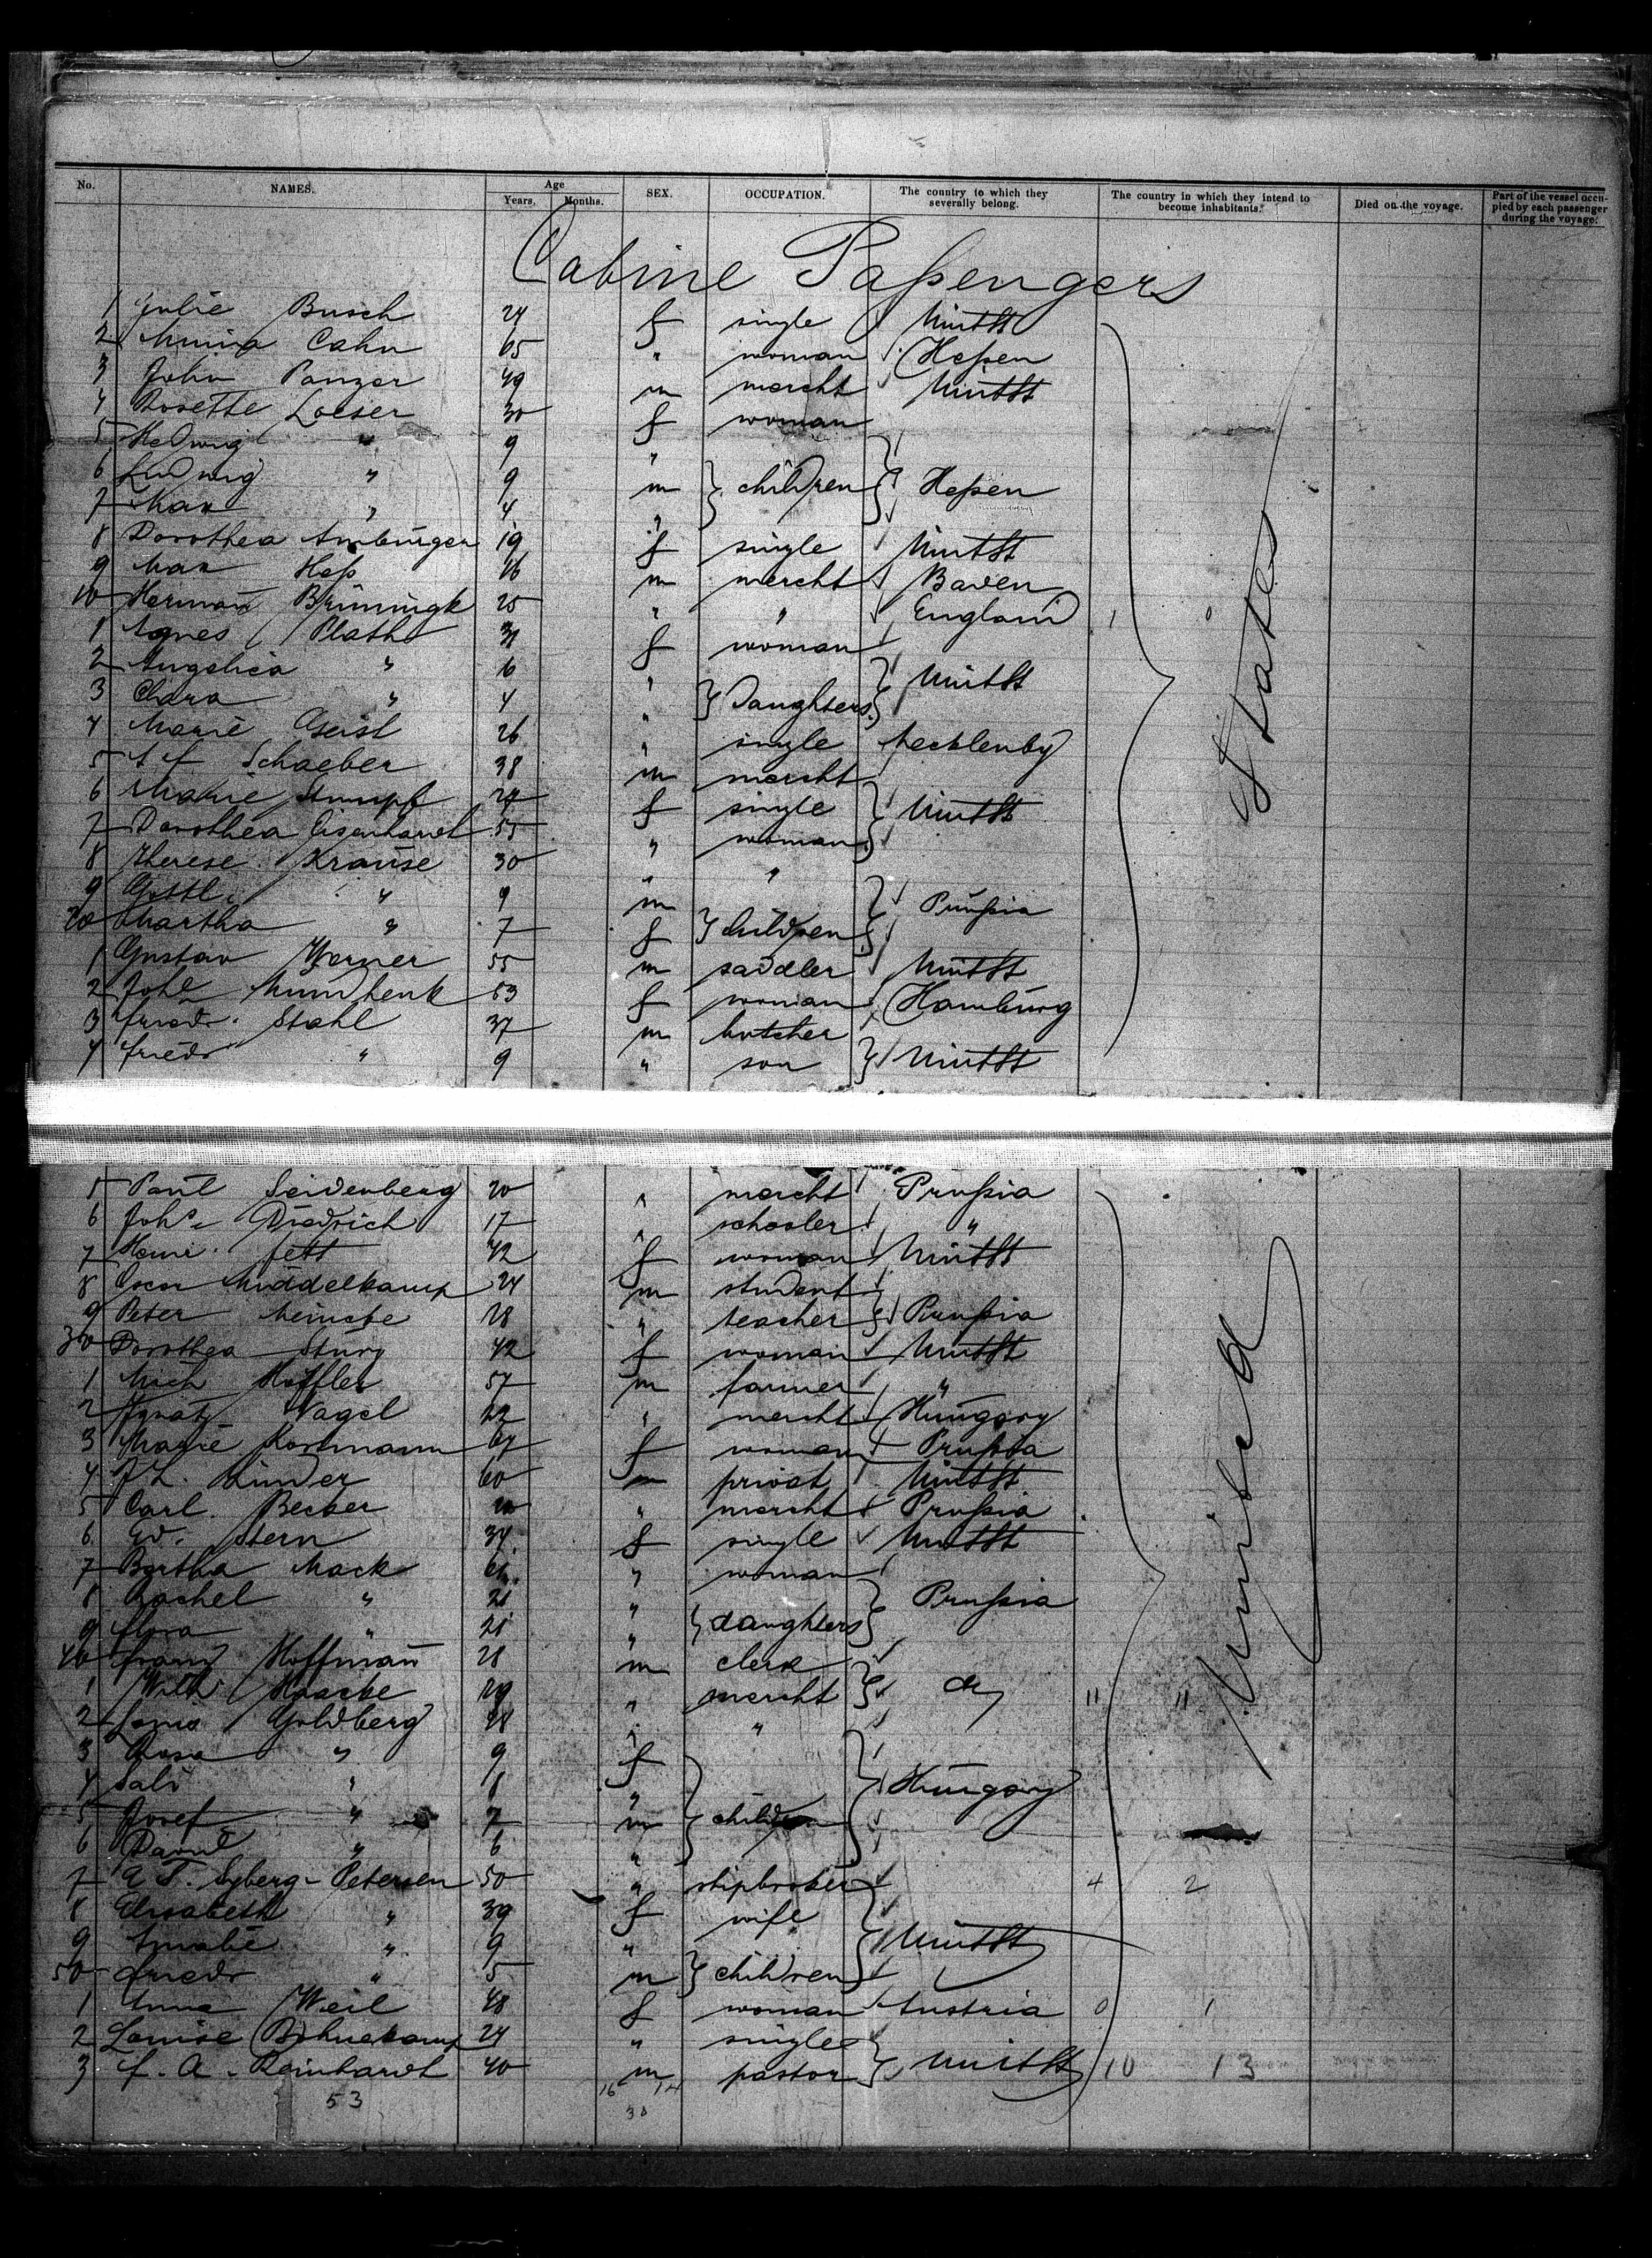 No. NAMES. Age Years. Months. SEX. OCCUPATION. The country to which they severally belong. The country in which they intend to become inhabitants. Died on the voyage. Part of the vessel occupied by each passenger during the voyage.
Cabine Paßengers
1 Julie Busch 24 f single UnitSt
2 Minna Cahn 65 " woman Heßen
3 John Panzer 49 m mercht UnitSt
4 Rosette Loeser 30 f woman
5 Hedwig " 9 "
6 Ludwig " 9 m children Heßen
7 Max " 4 "
8 Dorothea Amburger 19 f single UnitSt
9 Max Heß 16 m mercht Baden
10 Herman Brüningk 25 " " England 1 0
1 Agnes Plath 31 f woman
2 Angelica " 6 " UnitSt
3 Clara " 4 " Daughters
4 Marie Geist 26 " single Mecklenbg
5 Schaeber 38 m mercht
6 Marie Stumpf 24 f single UnitSt
7 Dorothea Eisenhardt 55 " woman
8 Therese Krause 30 " "
9 Gottl. " 9 m Prußia
20 Martha " 7 f children
1 Gustav Werner 55 m saddler UnitSt
2 Johe Mundhenk 53 f woman Hamburg
3 Friedr. Stahl 37 m butcher
4 Friedr " 9 " son UnitSt
5 Paul Seidenberg 20 " mercht Prußia
6 Johs. Diedrich 17 " schooler "
7 Henri. Fett 42 f woman UnitSt
8 Oscar Middelkamp 24 m student
9 Peter Meincke 28 " teacher Prußia
30 Dorothea Sturg 42 f woman UnitSt
1 Mich Höffler 57 m farmer "
2 Ignatz Nagel 22 " mercht Hungary
3 Marie Kortmann 67 f woman Prußia
4 Linder 60 m privat UnitSt
5 Carl Becker " mercht Prußia
6 Ed. Stern 34 f single UnitSt
7 Bertha Mack " woman
8 Rachel " 21 " Prußia
9 Flora " 21 " daughters
40 Franz Hoffmann 28 m clerk
1 Wilh. Haacke 29 " mercht do 11 11
2 Louis Goldberg 28 " "
3 Rosa " 9 f
4 Sali " 8 " Hungary
5 Josef " 7 m children
6 David " 6 "
7 Syberg-Petersen 50 " shipbroker 4 2
8 Elisabeth " 39 f wife
9 Amalie " 9 " UnitSt
50 Friedr " 5 m children
1 Anna Weil 48 f woman Austria 0 1
2 Louise Bohnekamp 24 " single
3 F. A. Reinhardt 40 m pastor UnitSt 10 13
53 16 14
30
United States